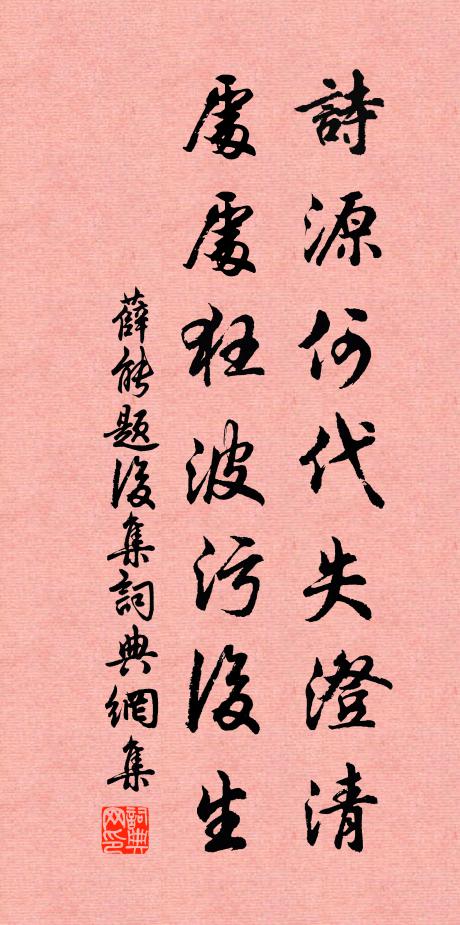 詩源何代失澄清
處處狂波污後生
薛能題後集詞典網集
詞典网印